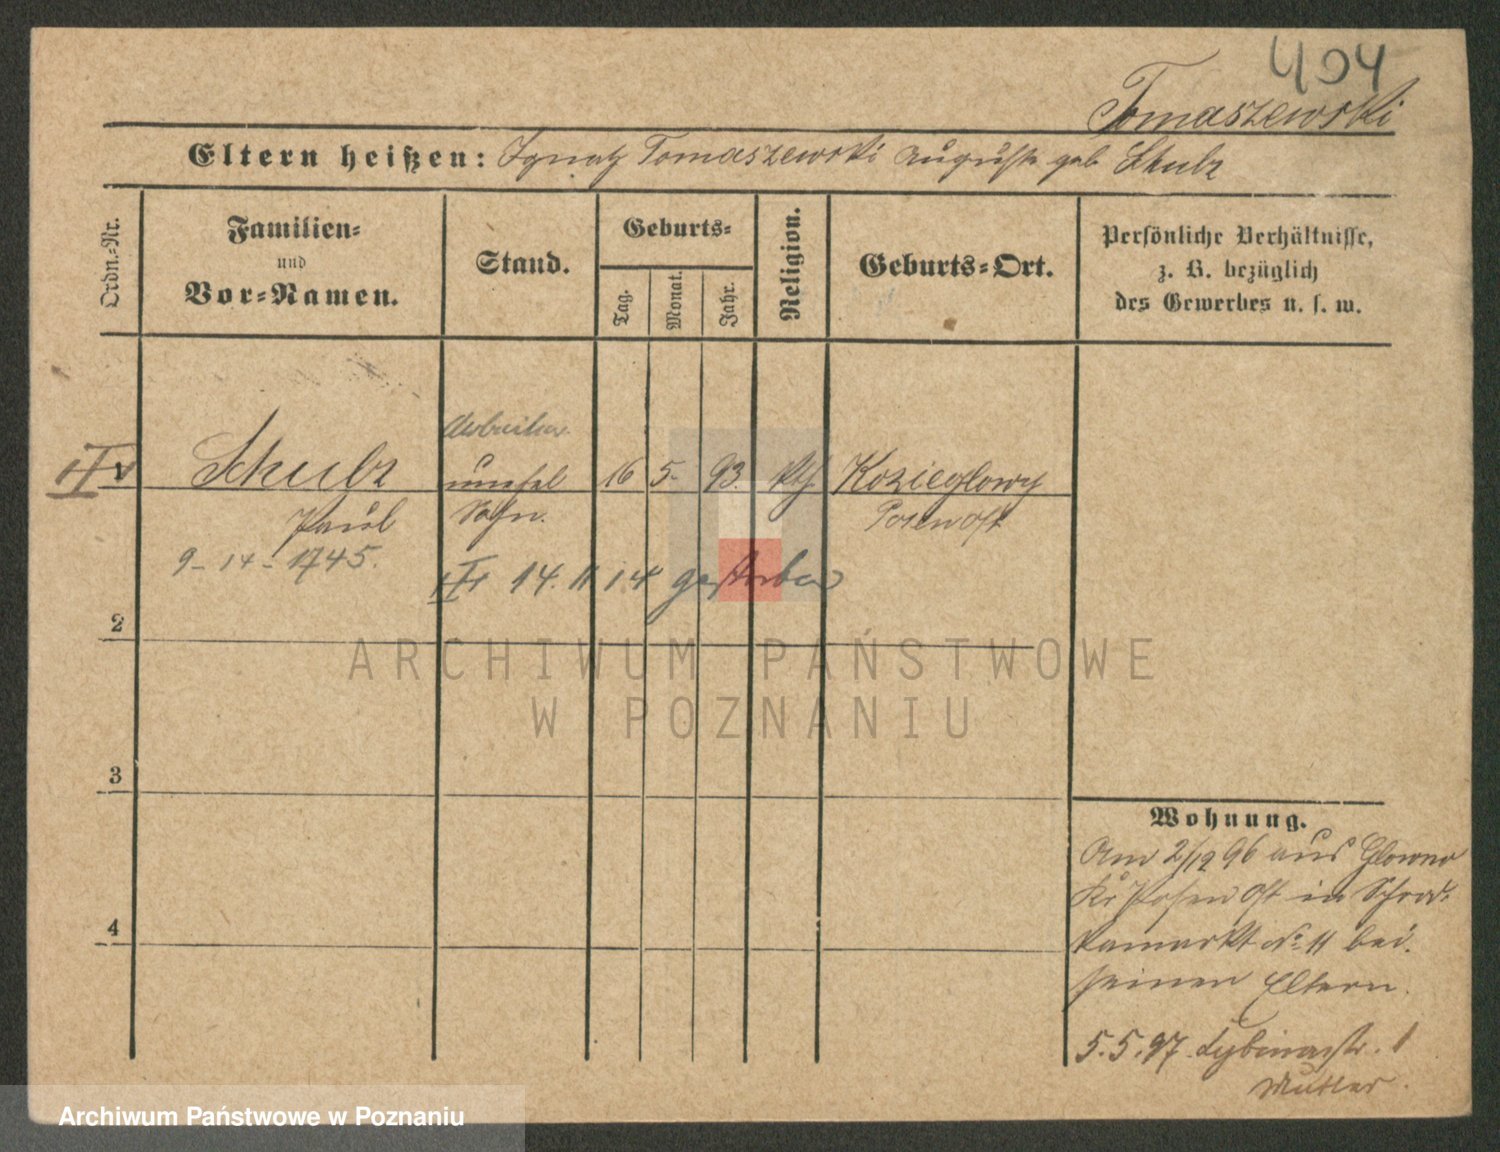 404
Tomaszewski
Eltern heißen: Ignatz Tomaszewski Auguste geb Schulz
Ordn.-Nr.
Familien-
und
Vor-Namen.
Stand.
Geburts-
Tag.
Monat.
Jahr.
Religion.
Geburts-Ort.
Persönliche Verhältnisse,
z. B. bezüglich
des Gewerbes u. s. w.
Arbeiter
Schulz unehel 16 5. 93. kth. Kozieglowy
Paul Sohn. Posen Ost
9-14-1745.
14. 11 14 gestorben
2
3
4
Wohnung.
Am 2/12 96 aus Glowno
Kr Posen Ost in Schrod-
kamarkt No 11 bei
seinen Eltern.
5.5.97. Sybinastr. 1
Mutter.
ARCHIWUM PAŃSTWOWE
W POZNANIU
Archiwum Państwowe w Poznaniu